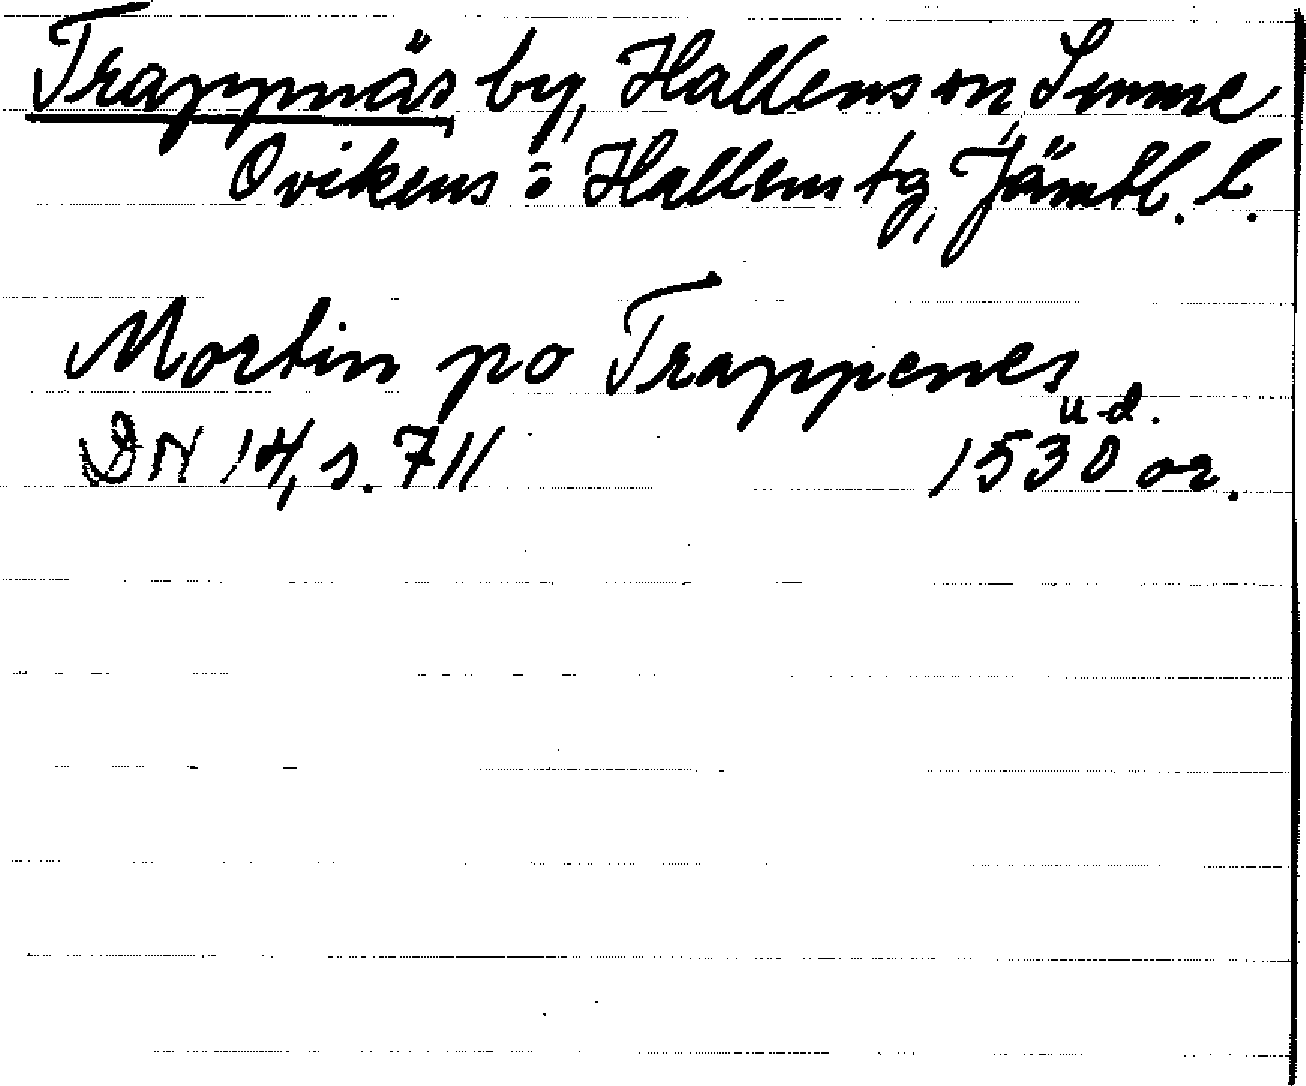 Trappnäs by, Hallens sn, Sunne
Ovikens o Hallens tg, Jämtl. l.
Mortin po Trappenes
u.d.
DN 14, s. 711 1530 or.